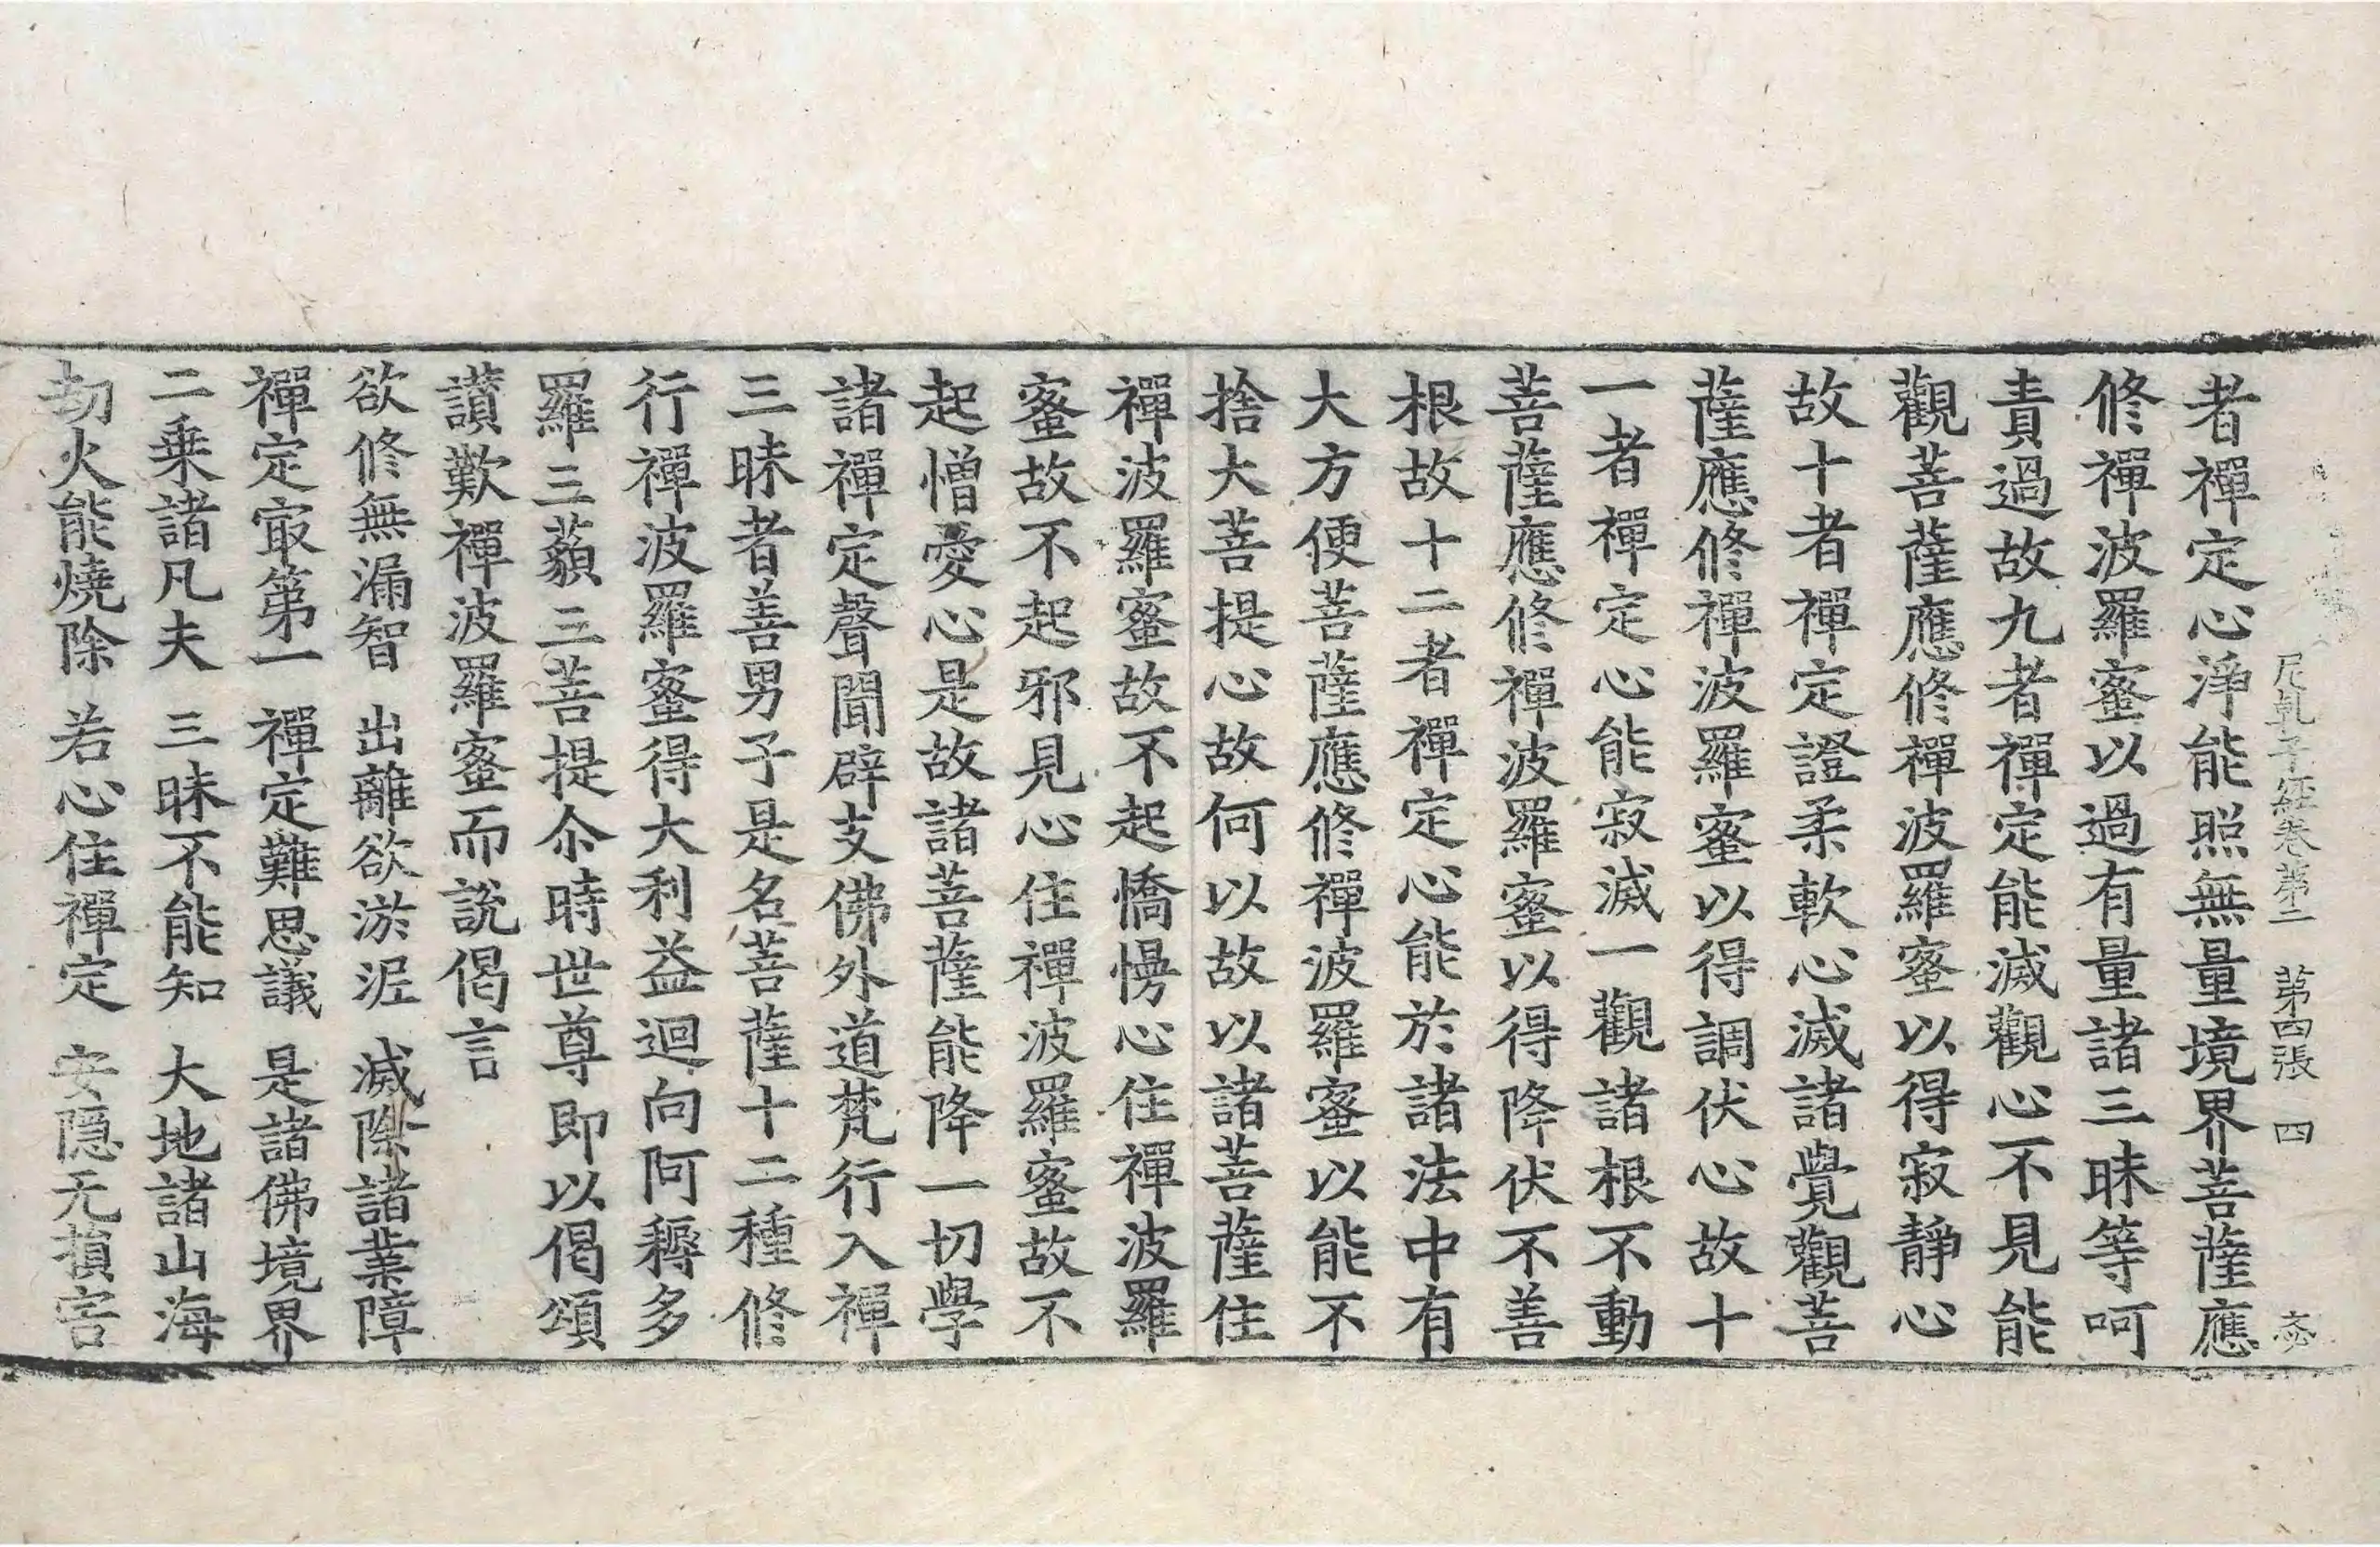 尼乹子經卷第二　第四張　四
者禪定心淨能照無量境界菩薩應
修禪波羅蜜以過有量諸三昧等呵
責過故九者禪定能滅觀心不見能
觀菩薩應修禪波羅蜜以得寂靜心
故十者禪定證柔軟心滅諸覺觀菩
薩應修禪波羅蜜以得調伏心故十
一者禪定心能寂滅一觀諸根不動
菩薩應修禪波羅蜜以得降伏不善
根故十二者禪定心能於諸法中有
大方便菩薩應修禪波羅蜜以能不
捨大菩提心故何以故以諸菩薩住
禪波羅蜜故不起憍慢心住禪波羅
蜜故不起邪見心住禪波羅蜜故不
起憎愛心是故諸菩薩能降一切學
諸禪定聲聞辟支佛外道梵行入禪
三昧者善男子是名菩薩十二種修
行禪波羅蜜得大利益迴向阿耨多
羅三藐三菩提尒時世尊即以偈頌
讃歎禪波羅蜜而說偈言
欲修無漏智　出離欲淤泥　滅除諸業障
禪定冣第一　禪定難思議　是諸佛境界
二乘諸凡夫　三昧不能知　大地諸山海
劫火能燒除　若心住禪定　安隱无損害